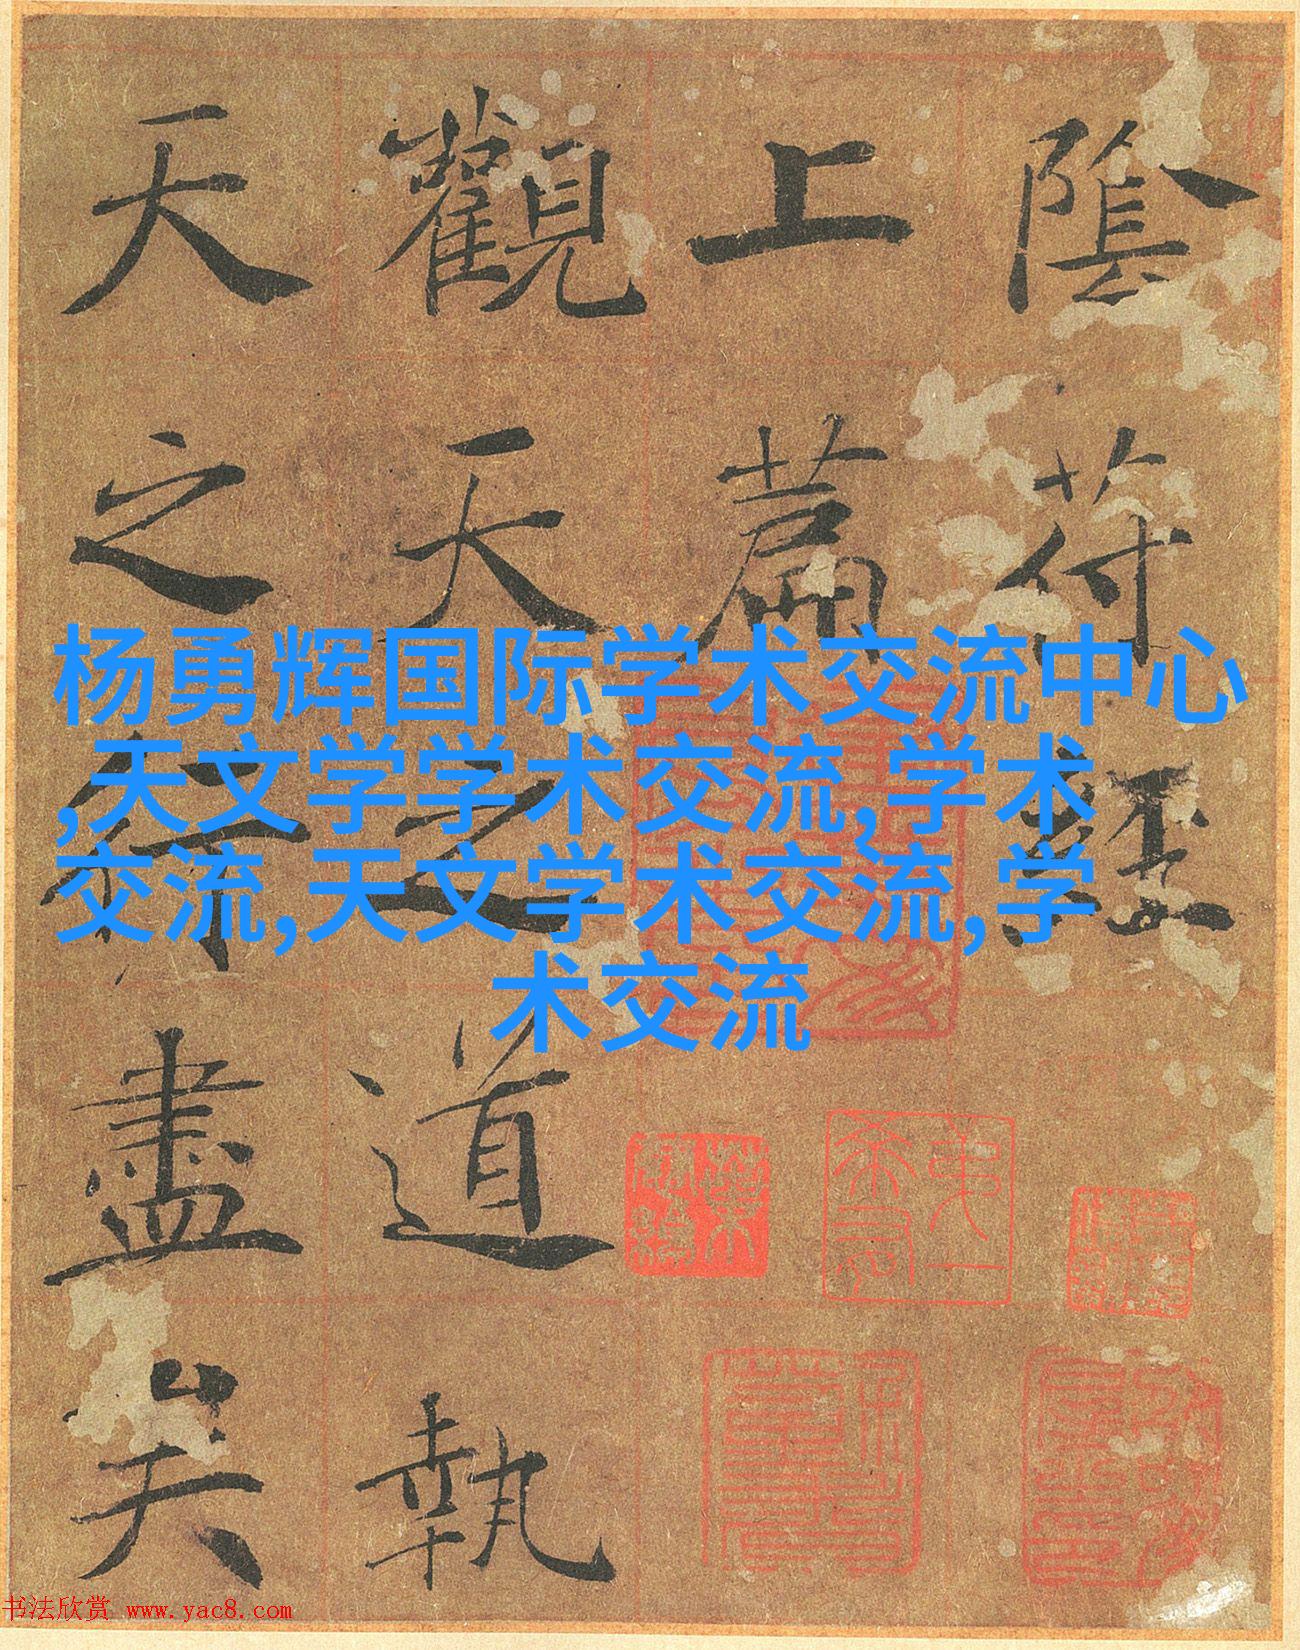 陰符經
上篇
觀天之道執
天之行盡矣
杨勇辉国际学术交流中心
,天文学学术交流,学术
交流,天文学术交流,学
术交流
书法欣赏 www.yac8.com